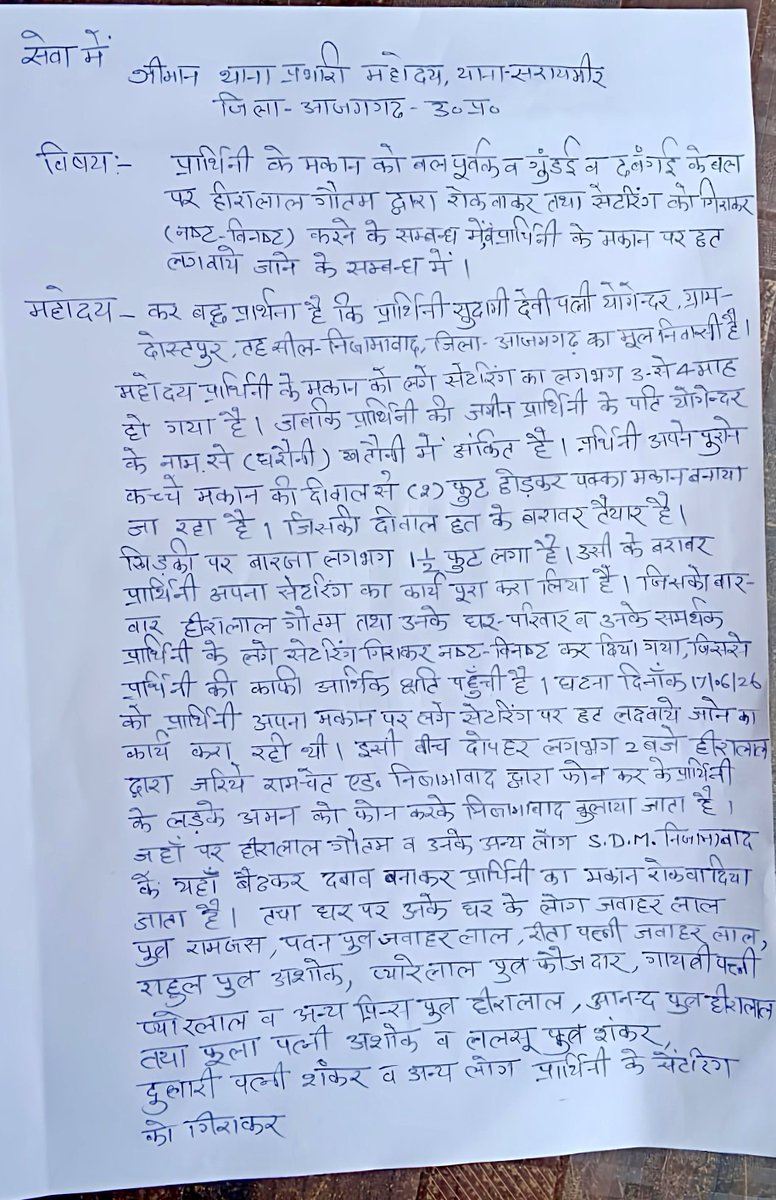 सेवा में
श्रीमान थाना प्रभारी महोदय, थाना-सरायमीर
जिला- आजमगढ- उ०प्र०
विषय:- प्रार्थिनी के मकान को बल पूर्वक व गुंडई व दबंगई के बल
पर हीरालाल गौतम द्वारा रोकवाकर तथा सेटरिंग को गिराकर
(नष्ट-विनष्ट) करने के सम्बन्ध में, व प्रार्थिनी के मकान पर छत
लगवाये जाने के सम्बन्ध में।
महोदय - कर बद्ध प्रार्थना है कि प्रार्थिनी सुदामी देवी पत्नी योगेन्दर, ग्राम-
दोस्तपुर, तहसील-निजामावाद, जिला-आजमगढ़ का मूल निवासी है।
महोदय प्रार्थिनी के मकान को लगे सेटरिंग का लगभग 3-से 4-माह
हो गया है। जबकि प्रार्थिनी की जमीन प्रार्थिनी के पति योगेन्दर
के नाम से (घरौनी) खतौनी में अंकित है। प्रर्थिनी अपने पुराने
कच्चे मकान की दीवाल से (२) फुट छोड़कर पक्का मकान बनाया
जा रहा है। जिसकी दीवाल छत के बरावर तैयार है।
खिड़की पर बारजा लगभग 1½ फुट लगा है। उसी के बराबर
प्रार्थिनी अपना सेटरिंग का कार्य पूरा करा लिया है। जिसको बार-
बार हीरालाल गौतम तथा उनके घर-परिवार व उनके समर्थक
प्रार्थिनी के लगे सेटरिंग गिराकर नष्ट-विनष्ट कर दिया गया, जिससे
प्रर्थिनी की काफी आर्थिक क्षति पहुँची है। घटना दिनाँक 17/06/26
को प्रार्थिनी अपना मकान पर लगे सेटरिंग पर छत लदवाये जाने का
कार्य करा रही थी। इसी बीच दोपहर लगभग 2 बजे हीरालाल
द्वारा जरिये रामचेत एड० निजामावाद द्वारा फोन कर के प्रार्थिनी
के लड़के अमन को फोन करके निजामाबाद बुलाया जाता है।
जहाँ पर हीरालाल गौतम व उनके अन्य लोग S.D.M. निजामाबाद
के यहाँ बैठकर दबाव बनाकर प्रार्थिनी का मकान रोकवा दिया
जाता है। तथा घर पर उनके घर के लोग जवाहर लाल
पुत्र रामजस, पवन पुत्र जवाहर लाल, रीता पत्नी जवाहर लाल,
राहुल पुत्र अशोक, प्यारेलाल पुत्र फौजदार, गायत्री पत्नी
प्यारेलाल व अन्य प्रिन्स पुत्र हीरालाल, आनन्द पुत्र हीरालाल
तथा फूला पत्नी अशोक व ललसू पुत्र शंकर,
दुलारी पत्नी शंकर व अन्य लोग प्रार्थिनी के सेंटरिंग
को गिराकर